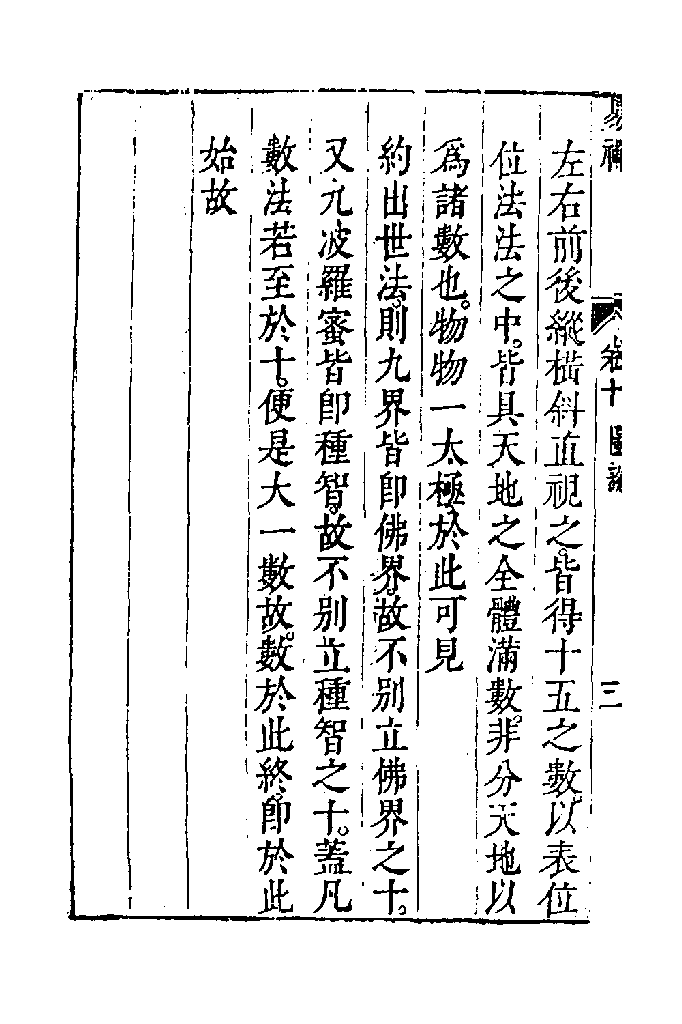 易禪 卷十 圖說 三
左右前後縱橫斜直視之。皆得十五之數。以表位
位法法之中。皆具天地之全體滿數。非分天地以
爲諸數也。物物一太極。於此可見
約出世法。則九界皆卽佛界。故不別立佛界之十。
又九波羅蜜皆卽種智。故不別立種智之十。蓋凡
數法若至於十。便是大一數故。數於此終。卽於此
始故